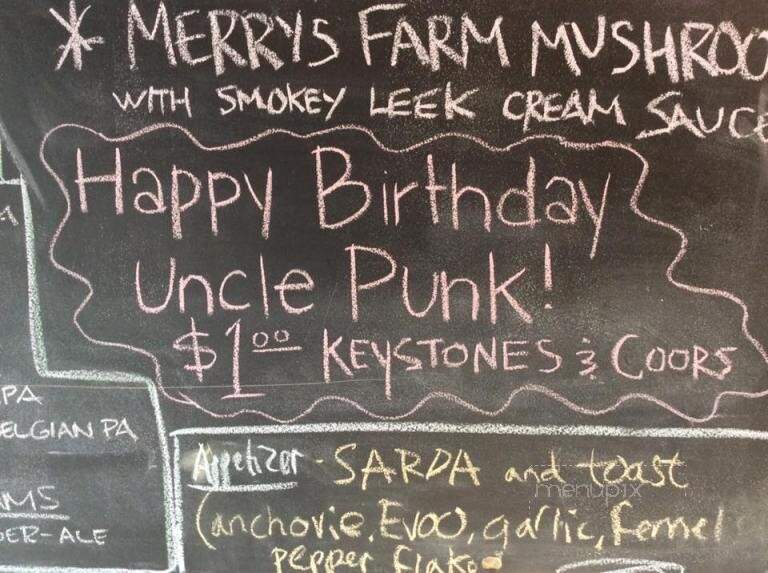 * MERRYS FARM MUSHROO
WITH SMOKEY LEEK CREAM SAUCE
Happy Birthday
Uncle Punk!
$1.00 KEYSTONES & COORS
PA
ELGIAN PA
AMS
DER-ALE
Appetizer - SARDA and toast
(anchovie, EVOO, garlic, fennel
pepper flake
menupix